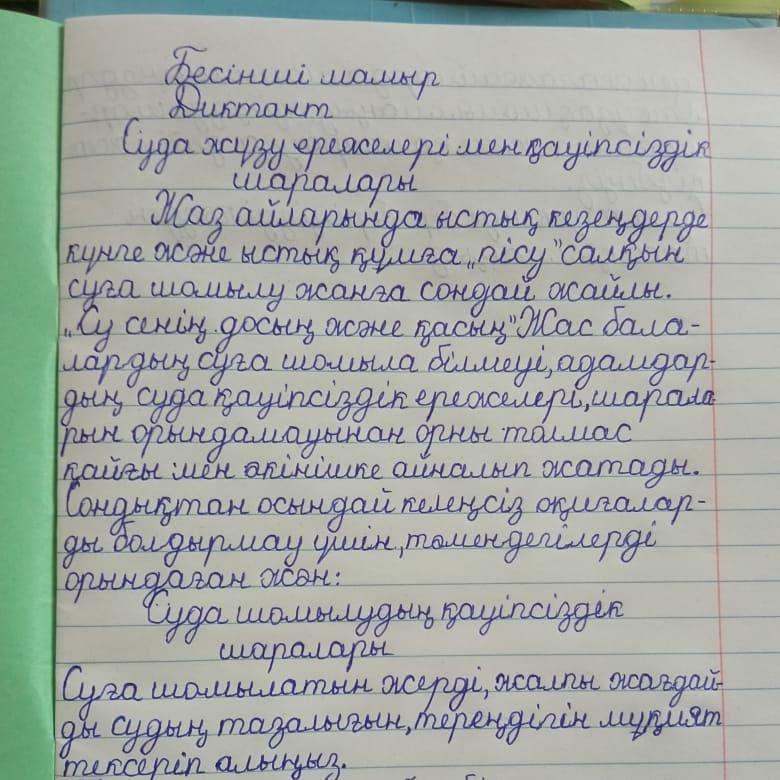 Бесінші мамыр
Диктант
Суда жүзу ережелері мен қауіпсіздік
шаралары
Жаз айларында ыстық кезеңдерде
күнге және ыстық құмға „пісу" салқын
суға шомылу жанға сондай жайлы.
„Су сенің досың және қасың" Жас бала-
лардың суға шомыла білмеуі, адамдар-
дың суда қауіпсіздік ережелері, шарала
рын орындамауынан орны толмас
қайғы мен өкінішке айналып жатады.
Сондықтан осындай келеңсіз оқиғалар-
ды болдырмау үшін, төмендегілерді
орындаған жөн:
Суда шомылудың қауіпсіздік
шаралары
Суға шомылатын жерді, жалпы жағдай-
ды судың тазалығын, тереңдігін мұқият
тексеріп алыңыз.